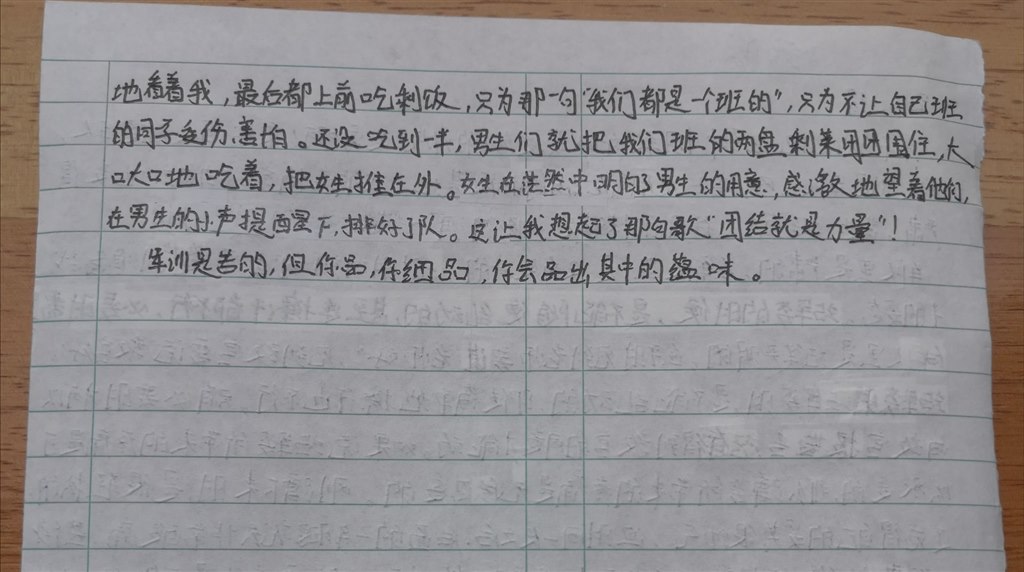 地看着我，最后都上前吃剩饭，只为那一句“我们都是一个班的”，只为不让自己班
的同子受伤、害怕。还没吃到一半，男生们就把我们班的两盘剩菜团团围住，大
口大口地吃着，把女生推在外。女生在茫然中明白了男生的用意，感激地望着他们，
在男生的小声提醒下，排好了队。这让我想起了那句歌“团结就是力量”！
军训是苦的，但你品，你细品，你会品出其中的蕴味。